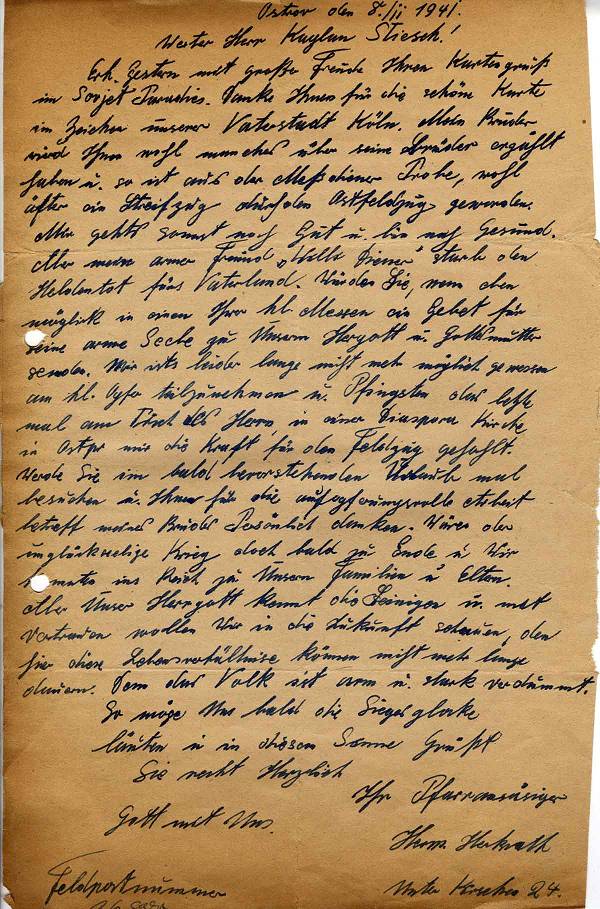 Ostrov den 8./II 1941.
Werter Herr Kaplan Stiesch!
Erh. Gestern mit große Freude Ihren Kartengruß
im Sovjet Paradies. Danke Ihnen für die schöne Karte
im Zeichen unserer Vaterstadt Köln. Mein Bruder
wird Ihnen wohl manches über seine Brüder erzählt
haben u. so ist aus der Meßdiener Probe, wohl
öfter ein Streifzug durch den Ostfeldzug geworden.
Mir gehts sonst noch Gut u. bin noch Gesund.
Aber mein armer Freund „Willi Diener" starb den
Heldentot fürs Vaterland. Würden Sie, wenn eben
möglich in einen Ihrer hl. Messen ein Gebet für
seine arme Seele zu Unserm Hergott u. Gottsmutter
senden. Mir ists leider lange nicht mehr möglich gewesen
am hl. Opfer teilzunehmen u. Pfingsten das letzte
mal am Tisch des Herrn, in einer Diaspora Kirche
in Ostpr mir die Kraft für den Feldzug geholt.
Werde Sie im bald bevorstehenden Urlaub mal
besuchen u. Ihnen für die aufopferungsvolle Arbeit
betreff meines Bruders Persönlich danken. Wäre der
unglückseelige Krieg doch bald zu Ende u Wir
könnte ins Reich zu Unsern Familien u Eltern.
Aber Unser Herrgott kennt die Seinigen u. mit
Vertrauen wollen Wir in die Zukunft schauen, den
hier diese Lebensverhältnise können nicht mehr lange
dauern. Den das Volk ist arm u. stark verdummt.
So möge Uns bald die Siegesglocke
läuten u in diesem Sinne Grüßt
Sie recht Herzlich
Ihr Pfarransäsiger
Gott mit Uns.
Herm. Herkrath
Feldpostnummer
Unter Kirschen 24.